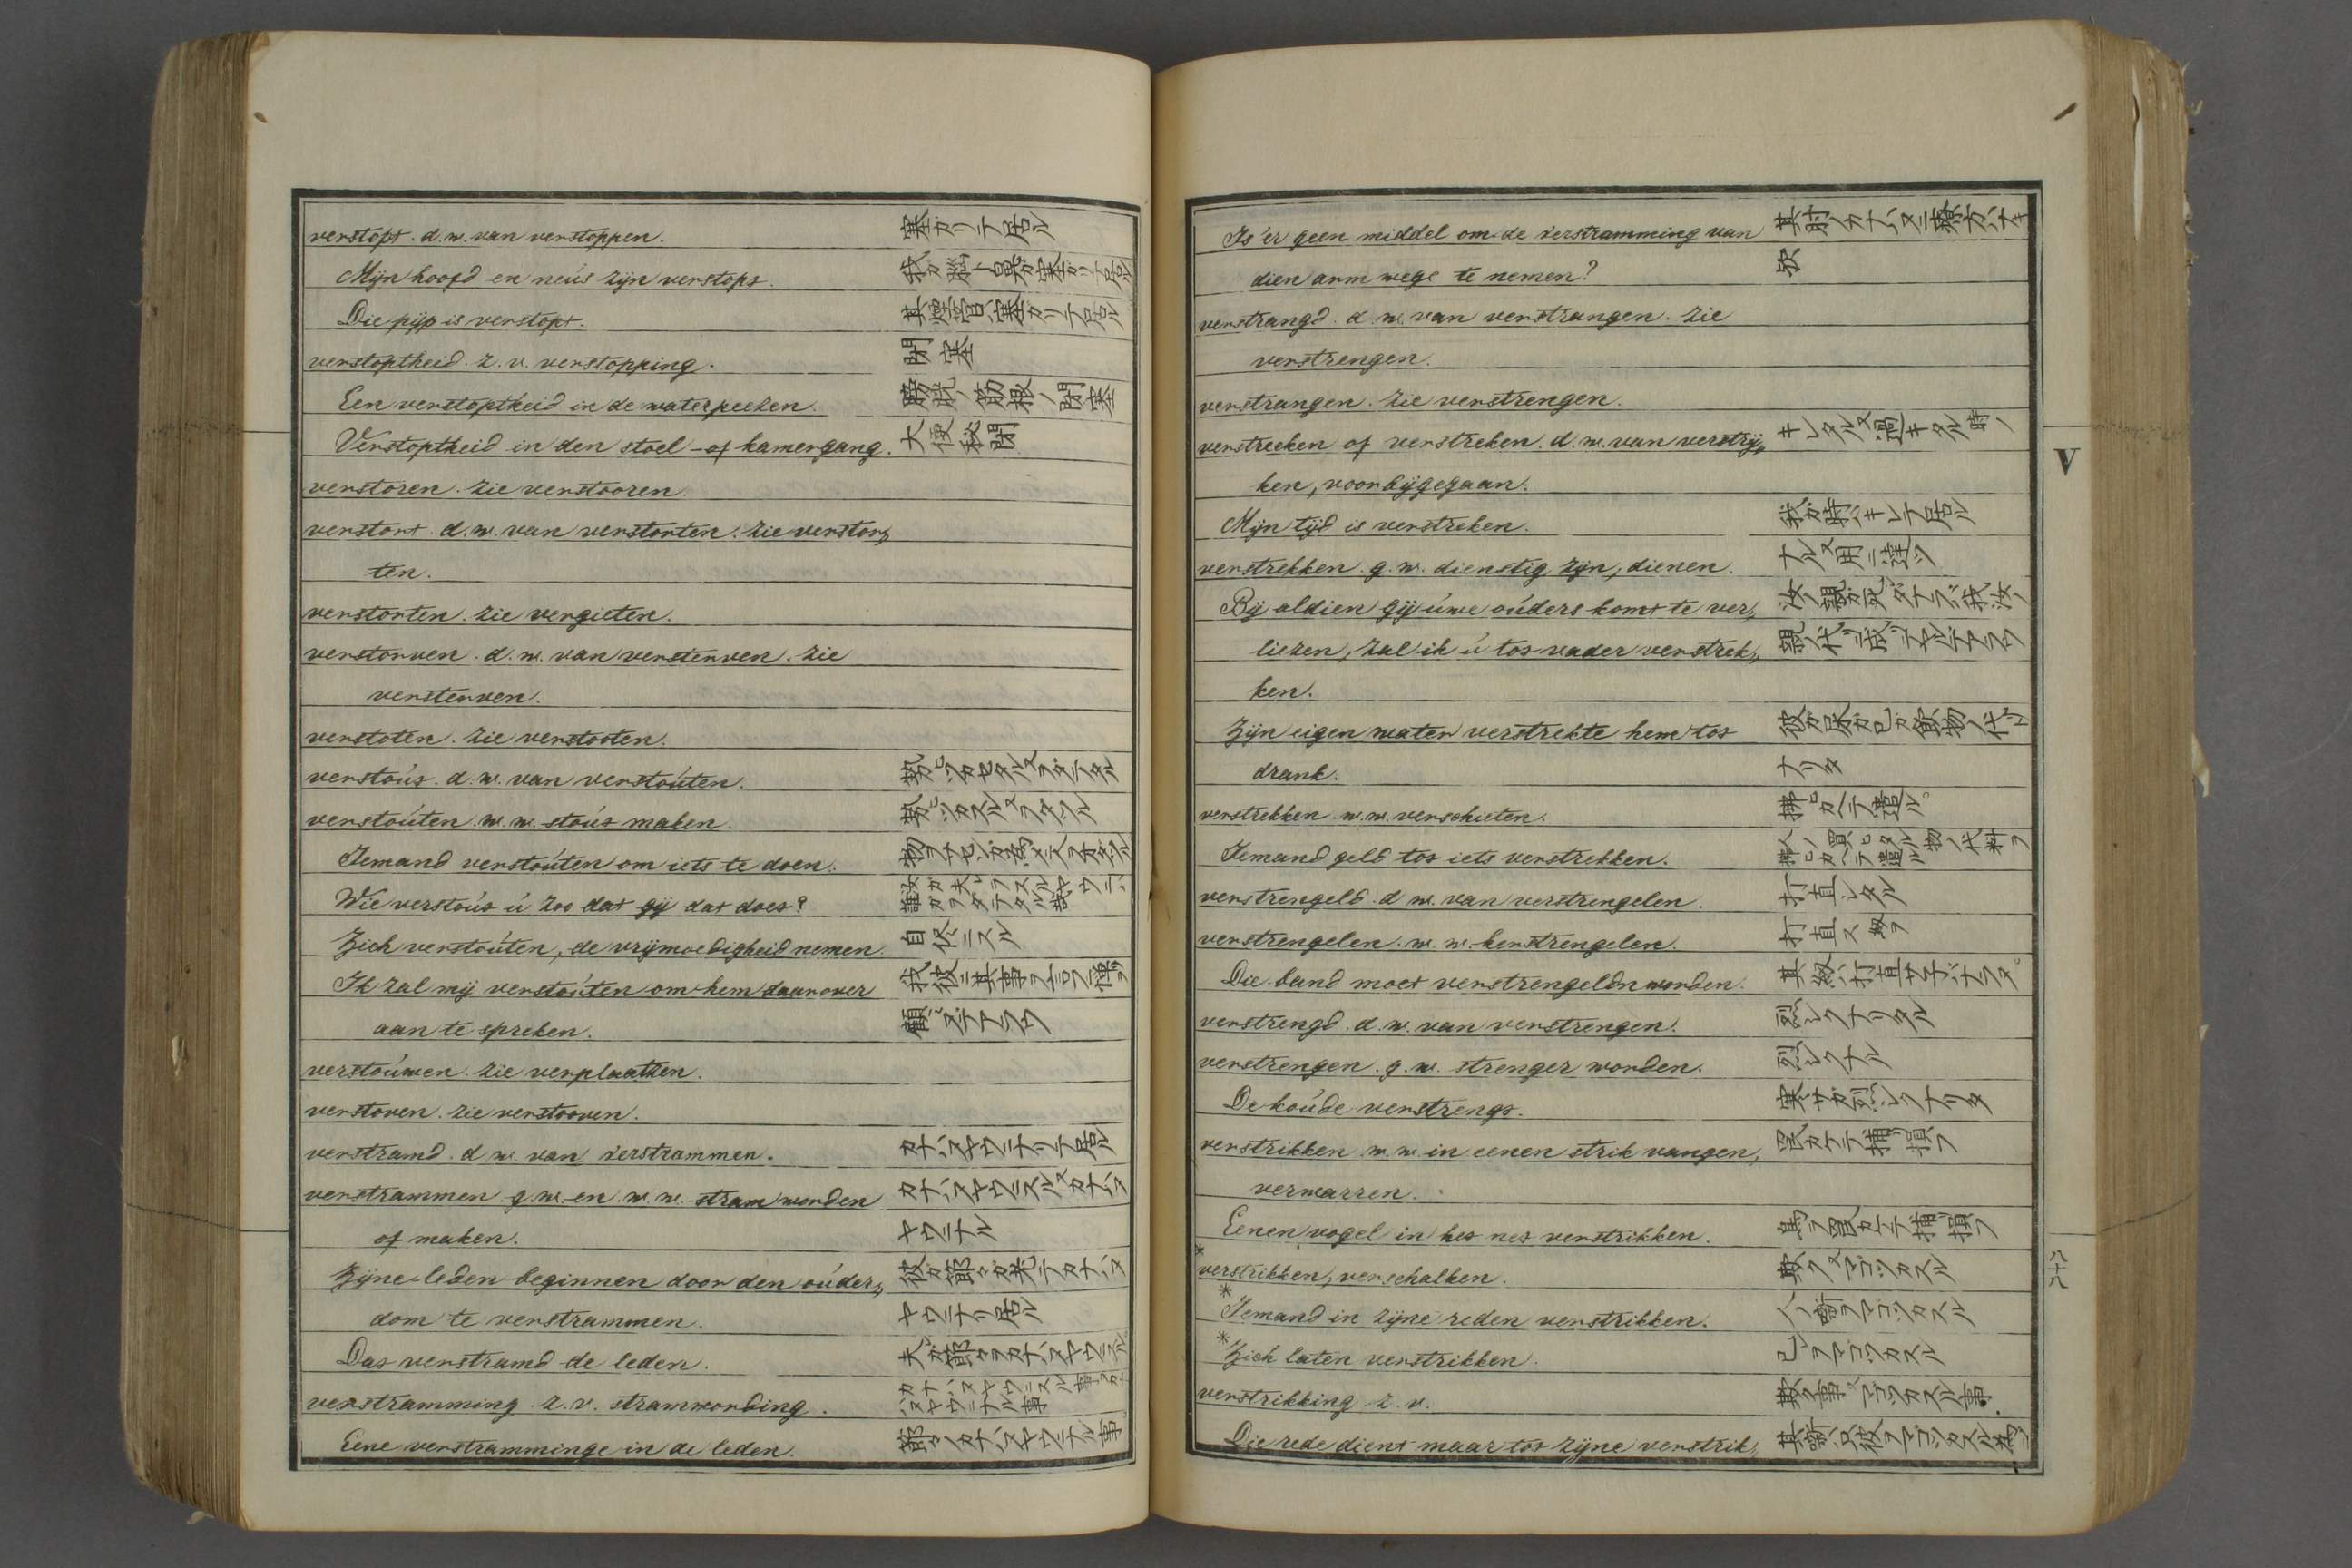 verstopt. d. w. van verstoppen. 塞ガリテ居ル
Mijn hoofd en neús zijn verstopt. 我ガ脳ト鼻ガ塞ガリテ居ル
Die pijp is verstopt. 其煙管ハ塞ガリテ居ル
verstoptheid. z. v. verstopping. 閉塞
Een verstoptheid in de waterpeezen. 膀胱ノ筋根ノ閉塞
Verstoptheid in den stoel- of kamergang. 大便秘閉
verstoren. zie verstooren.
verstort. d. w. van verstorten. zie verstor„
ten.
verstorten. zie vergieten.
verstorven. d. w. van versterven. zie
versterven.
verstoten. zie verstooten.
verstoút. d. w. van verstoúten.
verstoúten. w. w. stoút maken.
Iemand verstoúten om iets te doen.
Wie verstoút ú zoo dat gij dat doet?
Zich verstoúten, de vrijmoedigheid nemen. 自 ニスル
Ik zal mij verstoúten om hem daarover 我彼ニ其事ヲ言フ
aan te spreken. 顧 ズデアラウ
verstoúwen. zie verplaatzen.
verstoven. zie verstooven.
verstramd. d. w. van verstrammen. カナハヌヤウニナリテ居ル
verstrammen g. w. en w. w. stram worden カナハヌヤウニスル又カナハヌ
of maken. ヤウニナル
Zijne leden beginnen door den oúder„ 彼ガ節々ガ老テカナハヌ
dom te verstrammen. ヤウニナリ居ル
Dat verstramd de leden. 夫ガ節々ヲカナハヌヤウニスル
verstramming. z. v. stramwording. カナハヌヤウニスル事又カナハヌヤウニナル事
Eene verstramminge in de leden. 節々ノカナハヌヤウニナル事
Is 'er geen middel om de verstramming van 其肘ノカナハヌニ療方ハナキ
dien arm wege te nemen? 歟
verstrangd. d. w. van verstrangen. zie
verstrengen.
verstrangen. zie verstrengen.
verstreeken of verstreken. d. w. van verstrij„ キレタル又過キタル時ノ
ken, voorbijgegaan.
Mijn tijd is verstreken. 我ガ時ハキレテ居ル
verstrekken. g. w. dienstig zijn, dienen. ナル又用ニ達ツ
Bij aldien gij úwe oúders komt te ver„ 汝ノ親ガ死タナラバ我汝ノ
liezen, zal ik ú tot vader verstrek„ 親ノ代リニ成リテヤルデアラウ
ken.
Zijn eigen water verstrekte hem tot 彼ガ尿ガ己ガ飲物ノ代リト
drank. ナリタ
verstrekken. w. w. verschieten. 拂ヒカヘテ遣ル。
Iemand geld tot iets verstrekken. 人ノ買ヒタル物ノ代料ヲ拂ヒカヘテ遣ル
verstrengeld. d. w. van verstrengelen. 打直シタル
verstrengelen. w. w. herstrengelen. 打直ス
Die band moet verstrengeldn worden. 其 ハ打直サ子バナラヌ。
verstrengd. d. w. van verstrengen. 烈シクナリタル
verstrengen. g. w. strenger worden. 烈シクナル
De koúde verstrengt. 寒サガ烈シクナリタ
verstrikken. w. w. in eenen strik vangen,
verwarren.
Eenen vogel in het net verstrikken.
* verstrikken, verschalken. 欺ク又マゴツカスル
* Iemand in zijne reden verstrikken. 人ノ話ヲマゴツカスル
* Zich laten verstrikken. 己レヲマゴツカスル
verstrikking. z. v. 欺ク事又マゴツカスル事.
Die rede dient maar tot zijne verstrik„ 其話ハ只彼ヲマゴツカスル為ニ
V
八十八